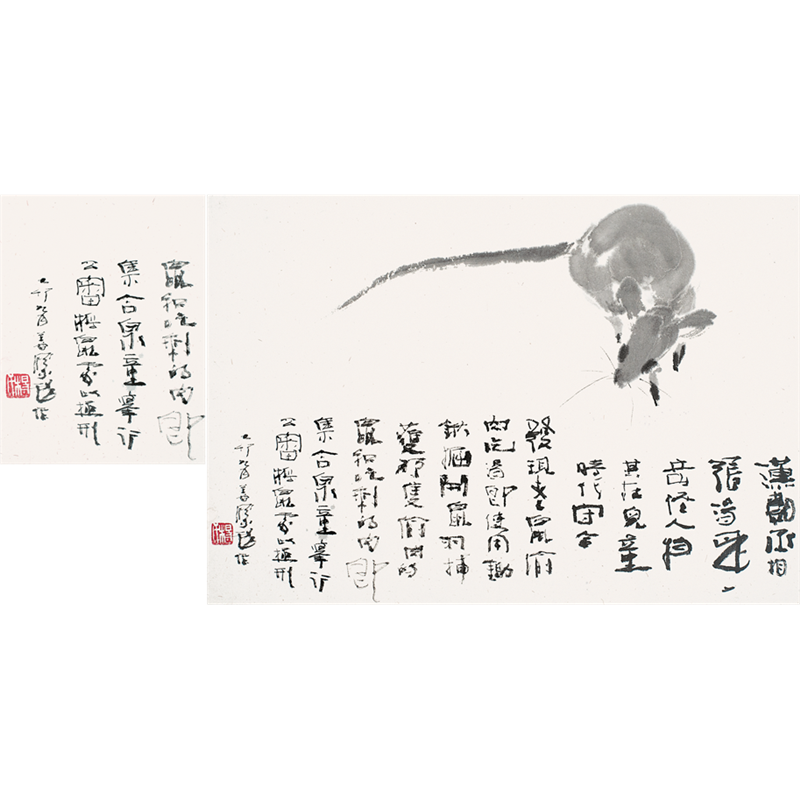 鼠和吃剩的肉即
集合眾童舉行
公審將鼠處以極刑
漢朝丞相
張湯是一
奇怪人物
其在兒童
時代守舍
發現老鼠偷
肉吃湯即使用鋤
鍬掘開鼠洞捕
獲那隻偷肉的
鼠和吃剩的肉即
集合眾童舉行
公審將鼠處以極刑